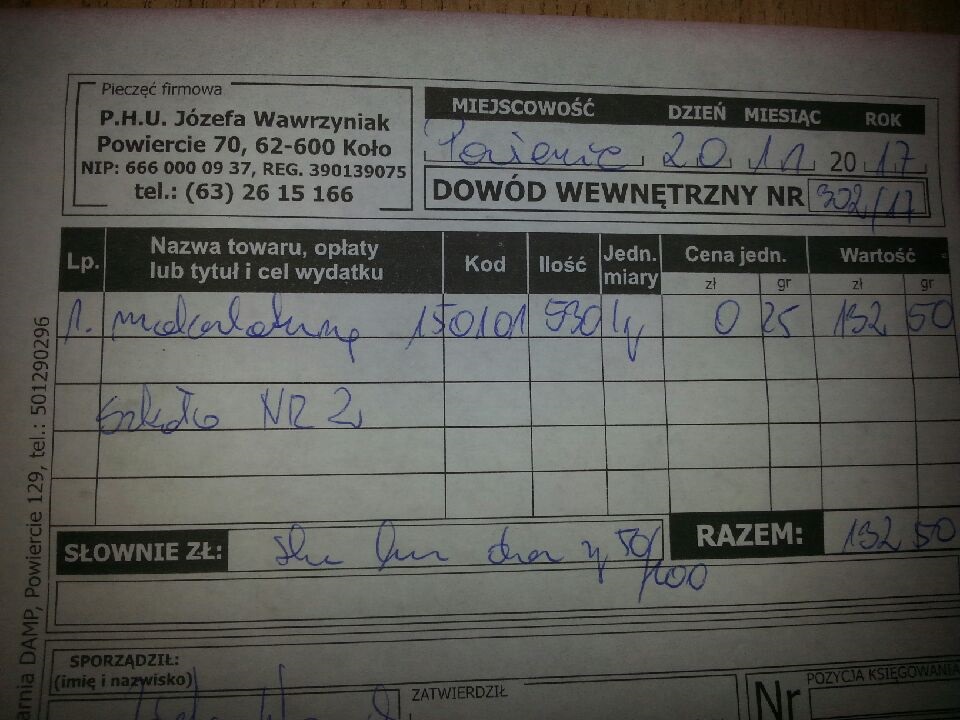 Pieczęć firmowa
P.H.U. Józefa Wawrzyniak
Powiercie 70, 62-600 Koło
NIP: 666 000 09 37, REG. 390139075
tel.: (63) 26 15 166
MIEJSCOWOŚĆ DZIEŃ MIESIĄC ROK
20 11 2017
DOWÓD WEWNĘTRZNY NR 302/17
Lp. Nazwa towaru, opłaty lub tytuł i cel wydatku Kod Ilość Jedn. miary Cena jedn. Wartość
zł gr zł gr
1. makulatura 150101 530 kg 0 25 132 50
Szkoła NR 2
RAZEM: 132 50
SŁOWNIE ZŁ: sto dwa zł 50/100
SPORZĄDZIŁ:
(imię i nazwisko)
ZATWIERDZIŁ
Nr
POZYCJA KSIĘGOWANIA
arnia DAMP, Powiercie 129, tel.: 501290296